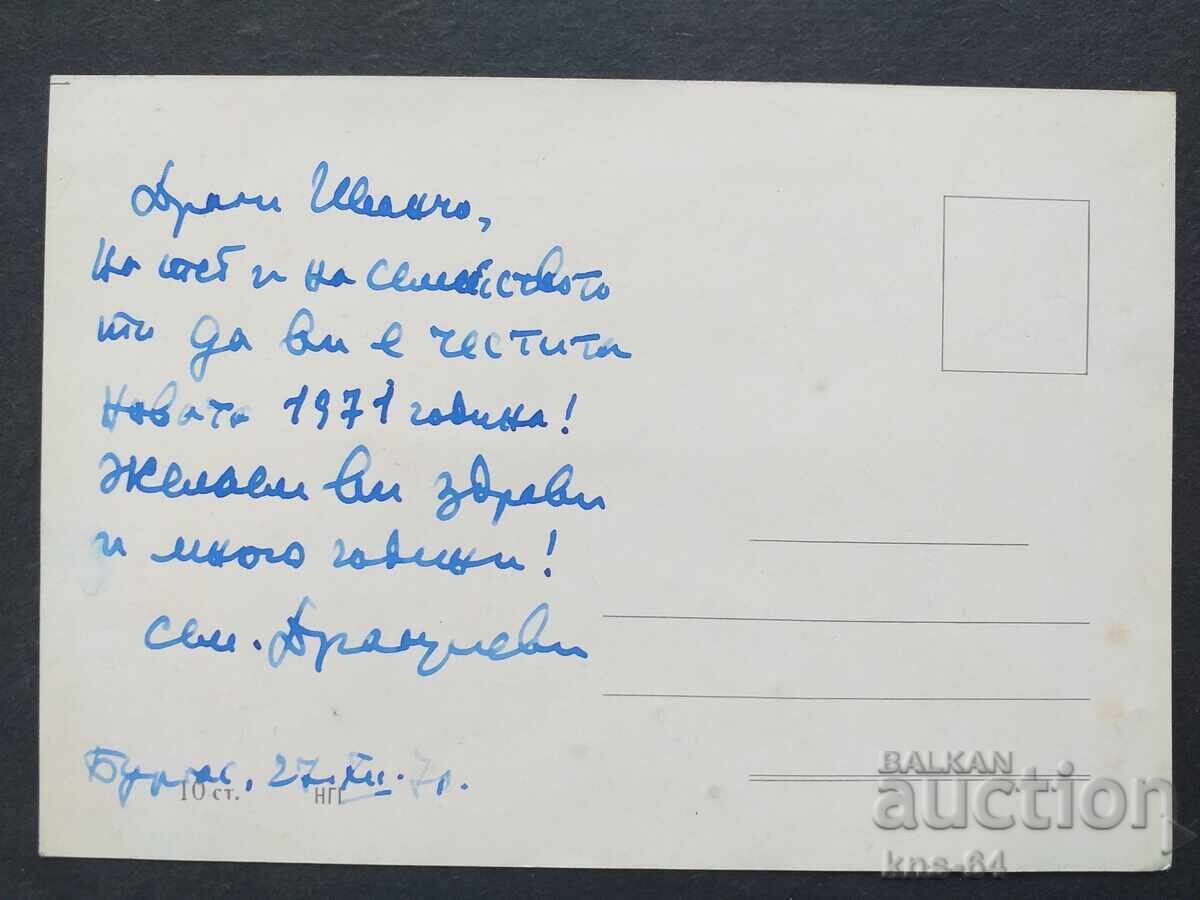 Драги Иванчо,
На теб и на семейството
ти да ви е честита
новата 1971 година!
Желаем ви здрави
и много години!
сем.
Бургас, 27.XII.70.
10 ст. НГП
BALKAN
auction
kns-64